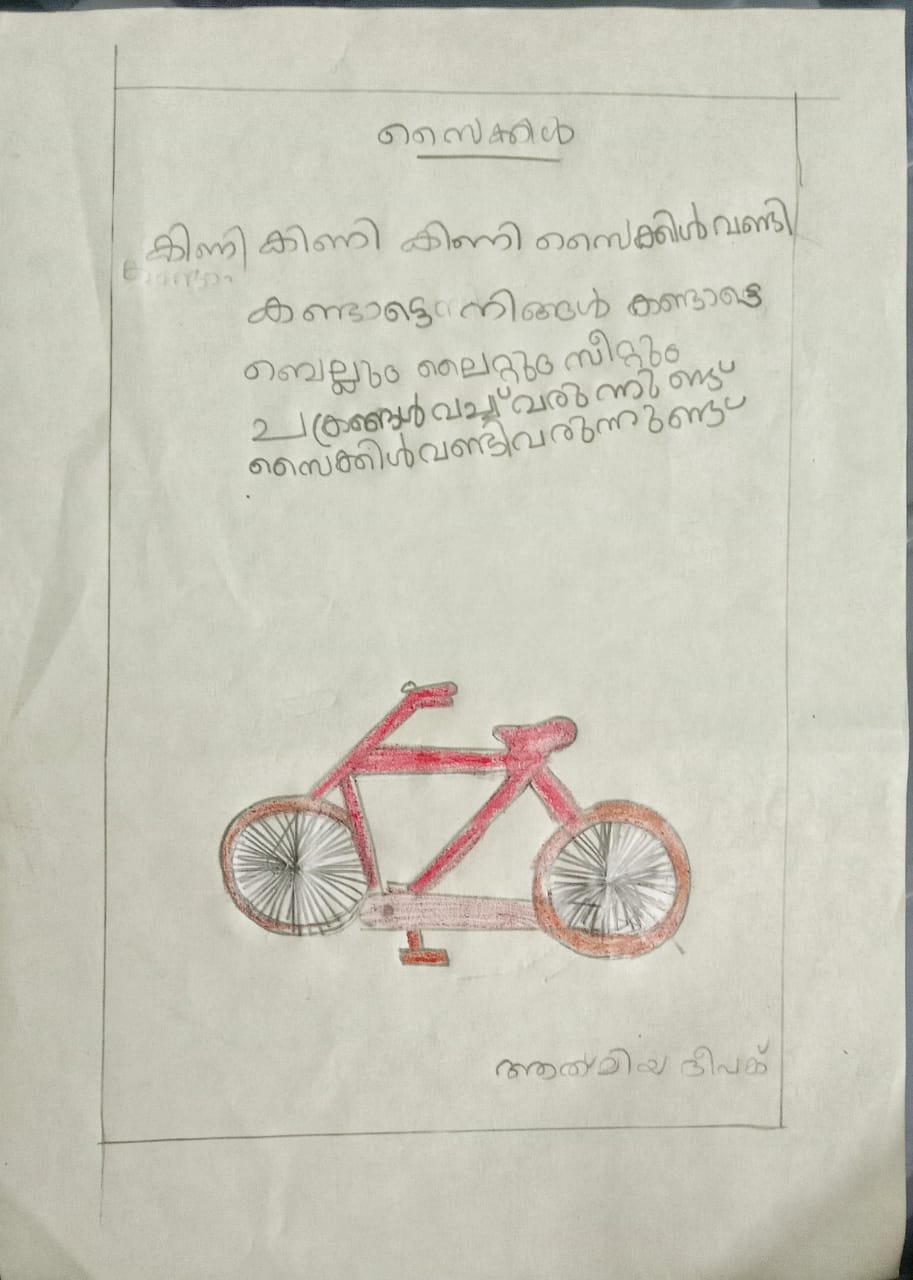 സൈക്കിൾ
കിണി കിണി കിണി സൈക്കിൾവണ്ടി
കണ്ടോട്ടെ നിങ്ങൾ കണ്ടോട്ടെ
ബെല്ലും ലൈറ്റും സീറ്റും
ചക്രങ്ങൾ വച്ച് വരുന്നുണ്ട്
സൈക്കിൾവണ്ടിവരുന്നുണ്ട്
ആത്മിയ ദീപക്